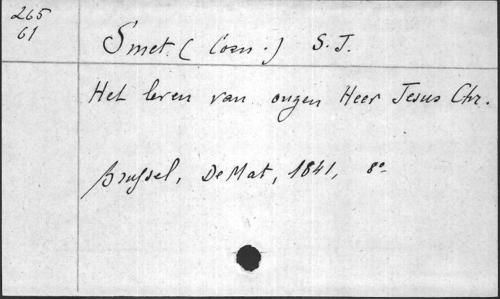 265
61
Smet (Corn.) S. J.
Het leven van onzen Heer Jesus Chr.
Brussel, De Mat, 1841, 8º